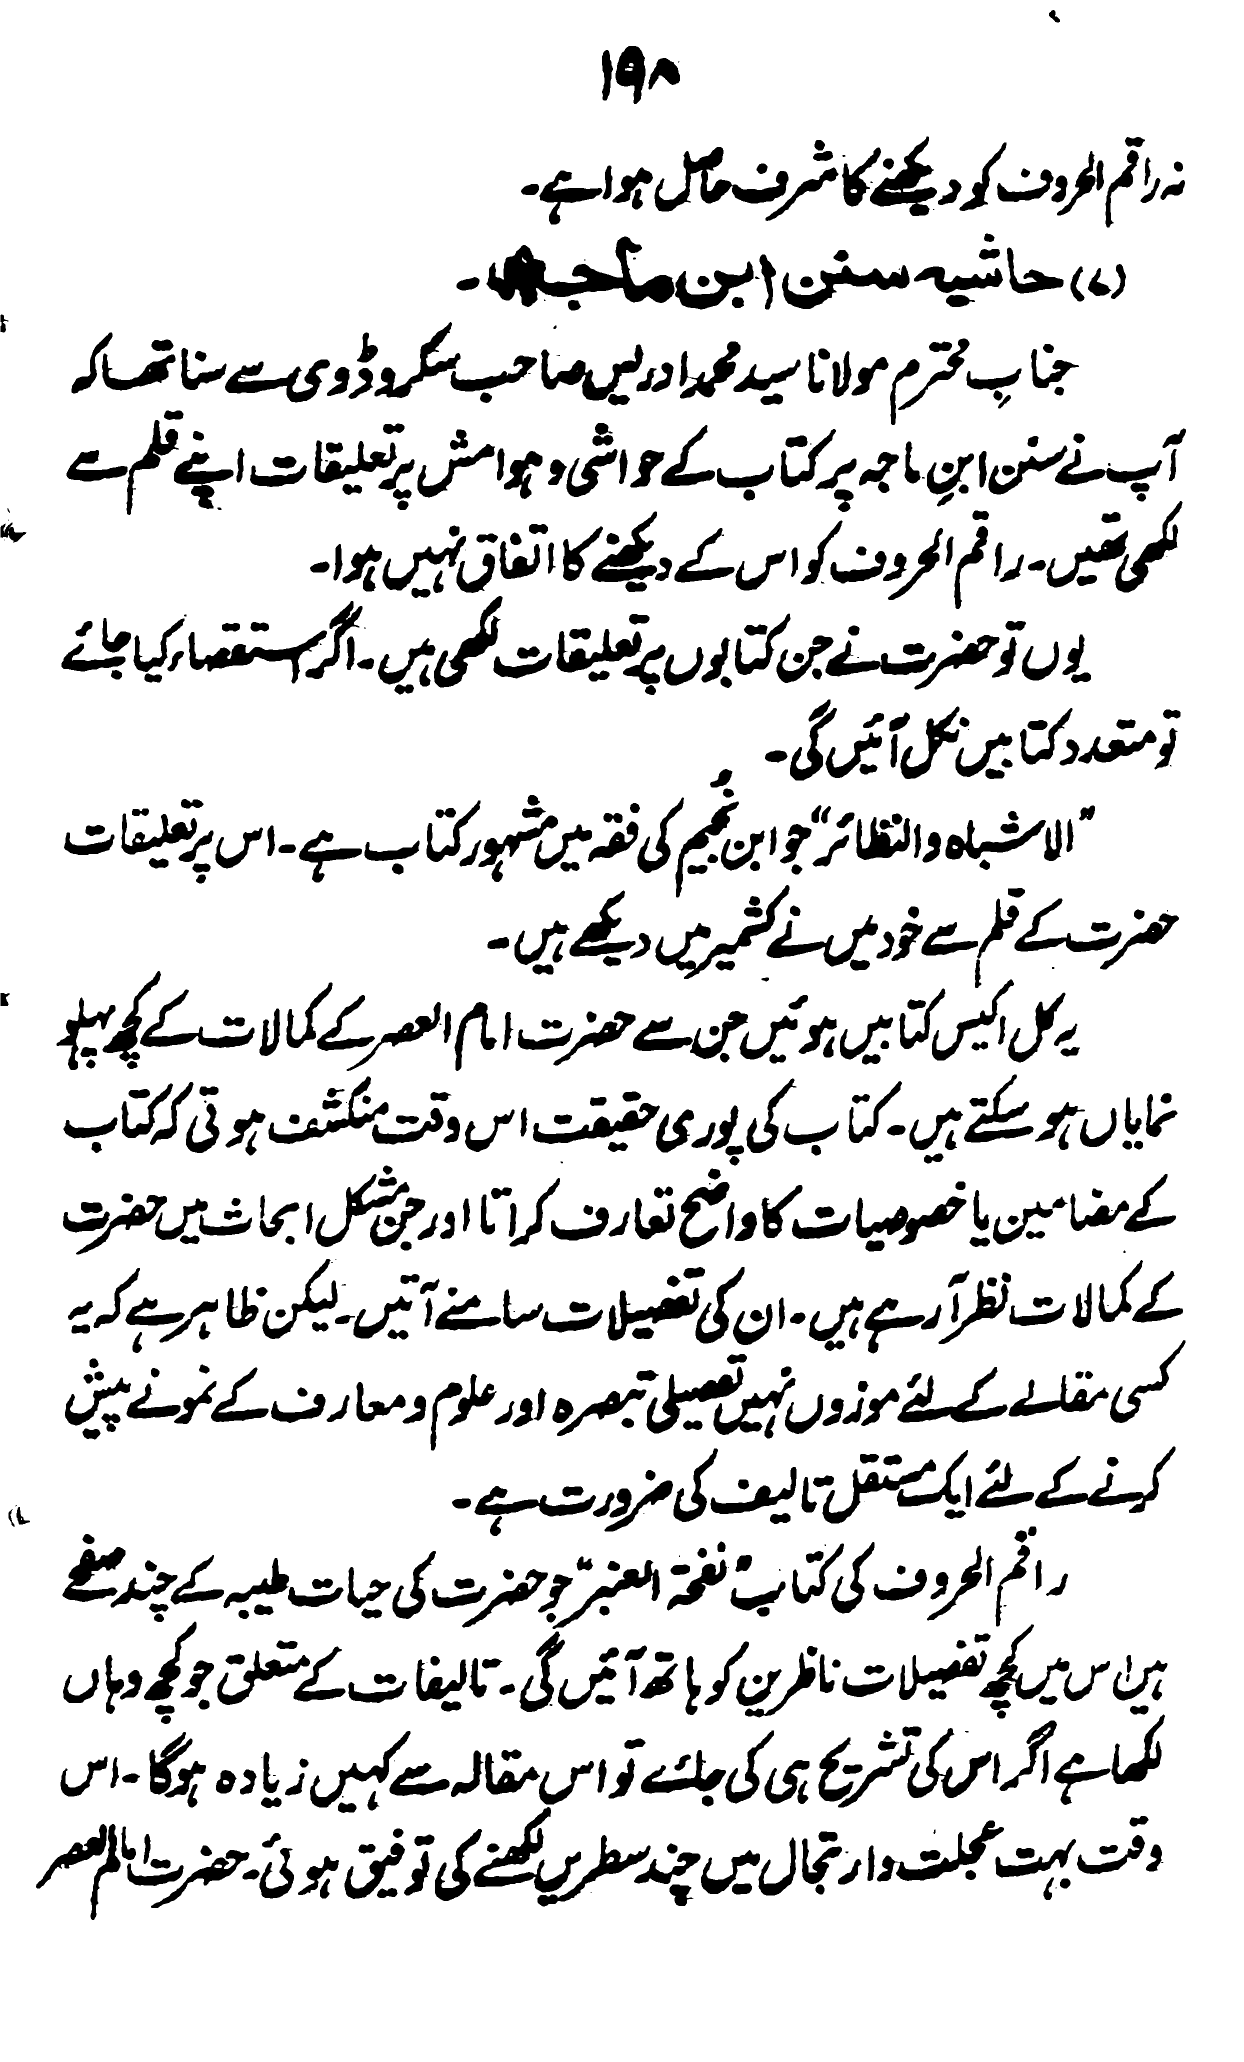 ۱۹۸
نہ راقم الحروف کو دیکھنے کا شرف حاصل ہوا ہے۔
(۷) حاشیہ سنن ابن ماجہ۔
جنابِ محترم مولانا سید محمد ادریس صاحب سکروڈوی سے سنا تھا کہ
آپ نے سنن ابنِ ماجہ پر کتاب کے حواشی و ہوامش پر تعلیقات اپنے قلم سے
لکھی تھیں۔ راقم الحروف کو اس کے دیکھنے کا اتفاق نہیں ہوا۔
یوں تو حضرت نے جن کتابوں پر تعلیقات لکھی ہیں۔ اگر استقصاء کیا جائے
تو متعدد کتابیں نکل آئیں گی۔
”الاشباہ والنظائر“ جو ابن نُجیم کی فقہ میں مشہور کتاب ہے۔ اس پر تعلیقات
حضرت کے قلم سے خود میں نے کشمیر میں دیکھے ہیں۔
یہ کل اکیس کتابیں ہوئیں جن سے حضرت امام العصر کے کمالات کے کچھ پہلو
نمایاں ہو سکتے ہیں۔ کتاب کی پوری حقیقت اس وقت منکشف ہوتی کہ کتاب
کے مضامین یا خصوصیات کا واضح تعارف کراتا اور جن مشکل ابحاث میں حضرت
کے کمالات نظر آرہے ہیں۔ ان کی تفصیلات سامنے آتیں۔ لیکن ظاہر ہے کہ یہ
کسی مقالے کے لئے موزوں نہیں تفصیلی تبصرہ اور علوم و معارف کے نمونے پیش
کرنے کے لئے ایک مستقل تالیف کی ضرورت ہے۔
راقم الحروف کی کتاب ”نفحۃ العنبر“ جو حضرت کی حیات طیبہ کے چند صفحے
ہیں اس میں کچھ تفصیلات ناظرین کو ہاتھ آئیں گی۔ تالیفات کے متعلق جو کچھ وہاں
لکھا ہے اگر اس کی تشریح ہی کی جائے تو اس مقالہ سے کہیں زیادہ ہوگا۔ اس
وقت بہت عجلت وارتجال میں چند سطریں لکھنے کی توفیق ہوئی۔ حضرت امام العصر